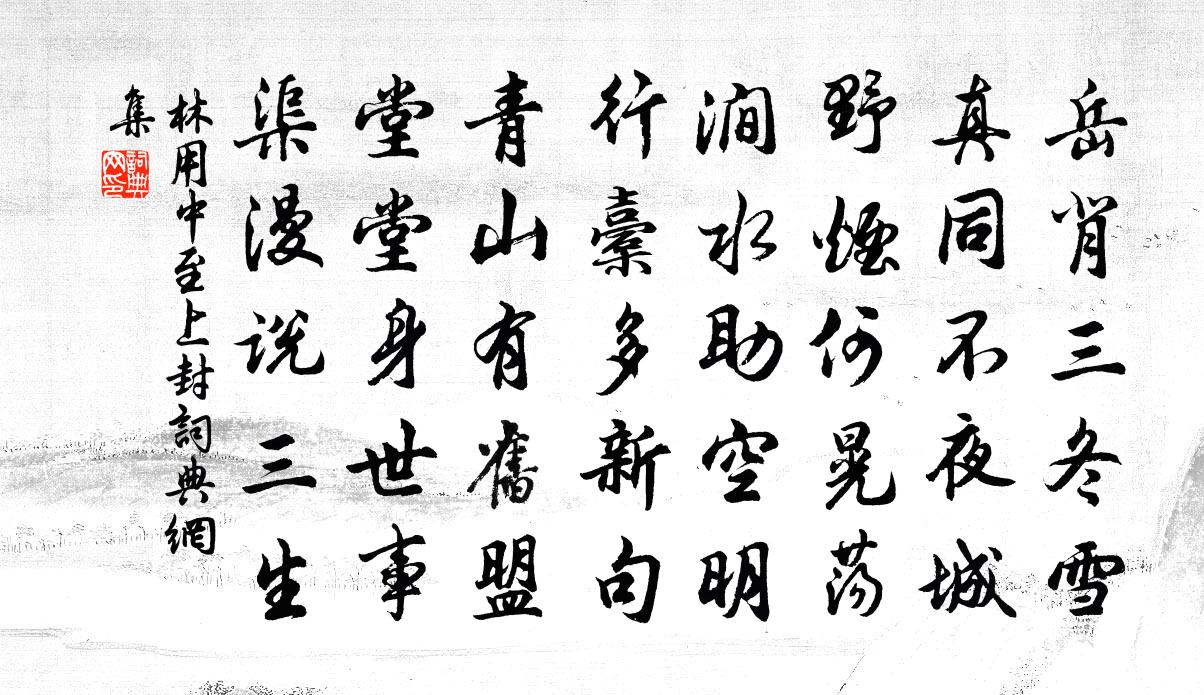 岳肖三冬雪
真同不夜城
野煙何晃蕩
澗水助空明
行橐多新句
青山有舊盟
堂堂身世事
渠漫説三生
林用中至上封詞典網
集
詞典
网印